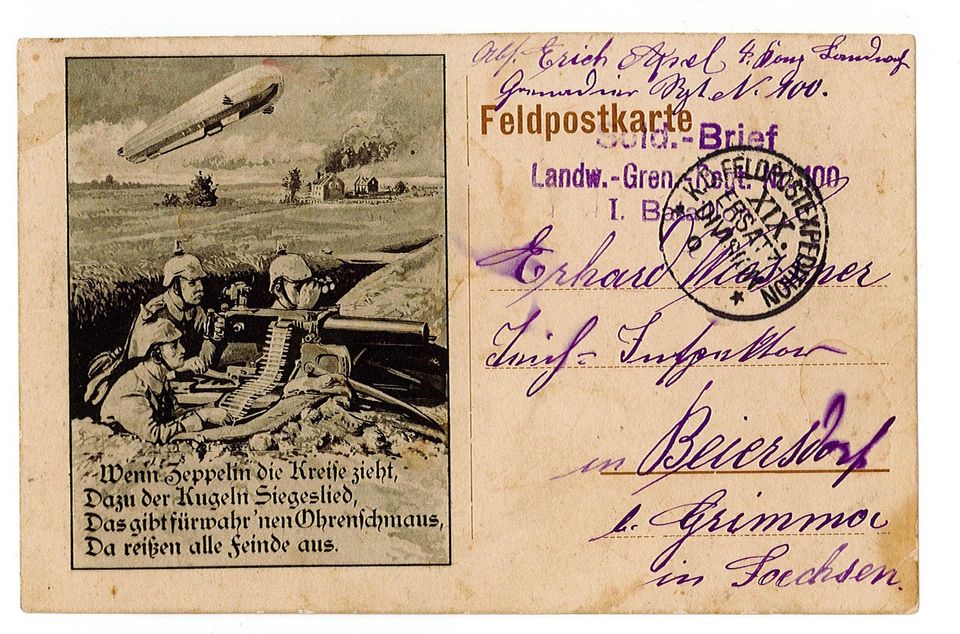 Abs. Erich Apel 4. Komp Landwehr
Grenadier Rgt. N. 100.
Feldpostkarte
Sold.-Brief
Landw.-Gren.-Regt. Nr. 100
I. Bataillon
K.D. FELDPOSTEXPEDITION
XIX.
ERSATZ
DIVISION
Erhard
Inspektor
in Beiersdorf
b. Grimma
in Sachsen.
Wenn Zeppelin die Kreise zieht,
Dazu der Kugeln Siegeslied,
Das gibt fürwahr 'nen Ohrenschmaus,
Da reißen alle Feinde aus.